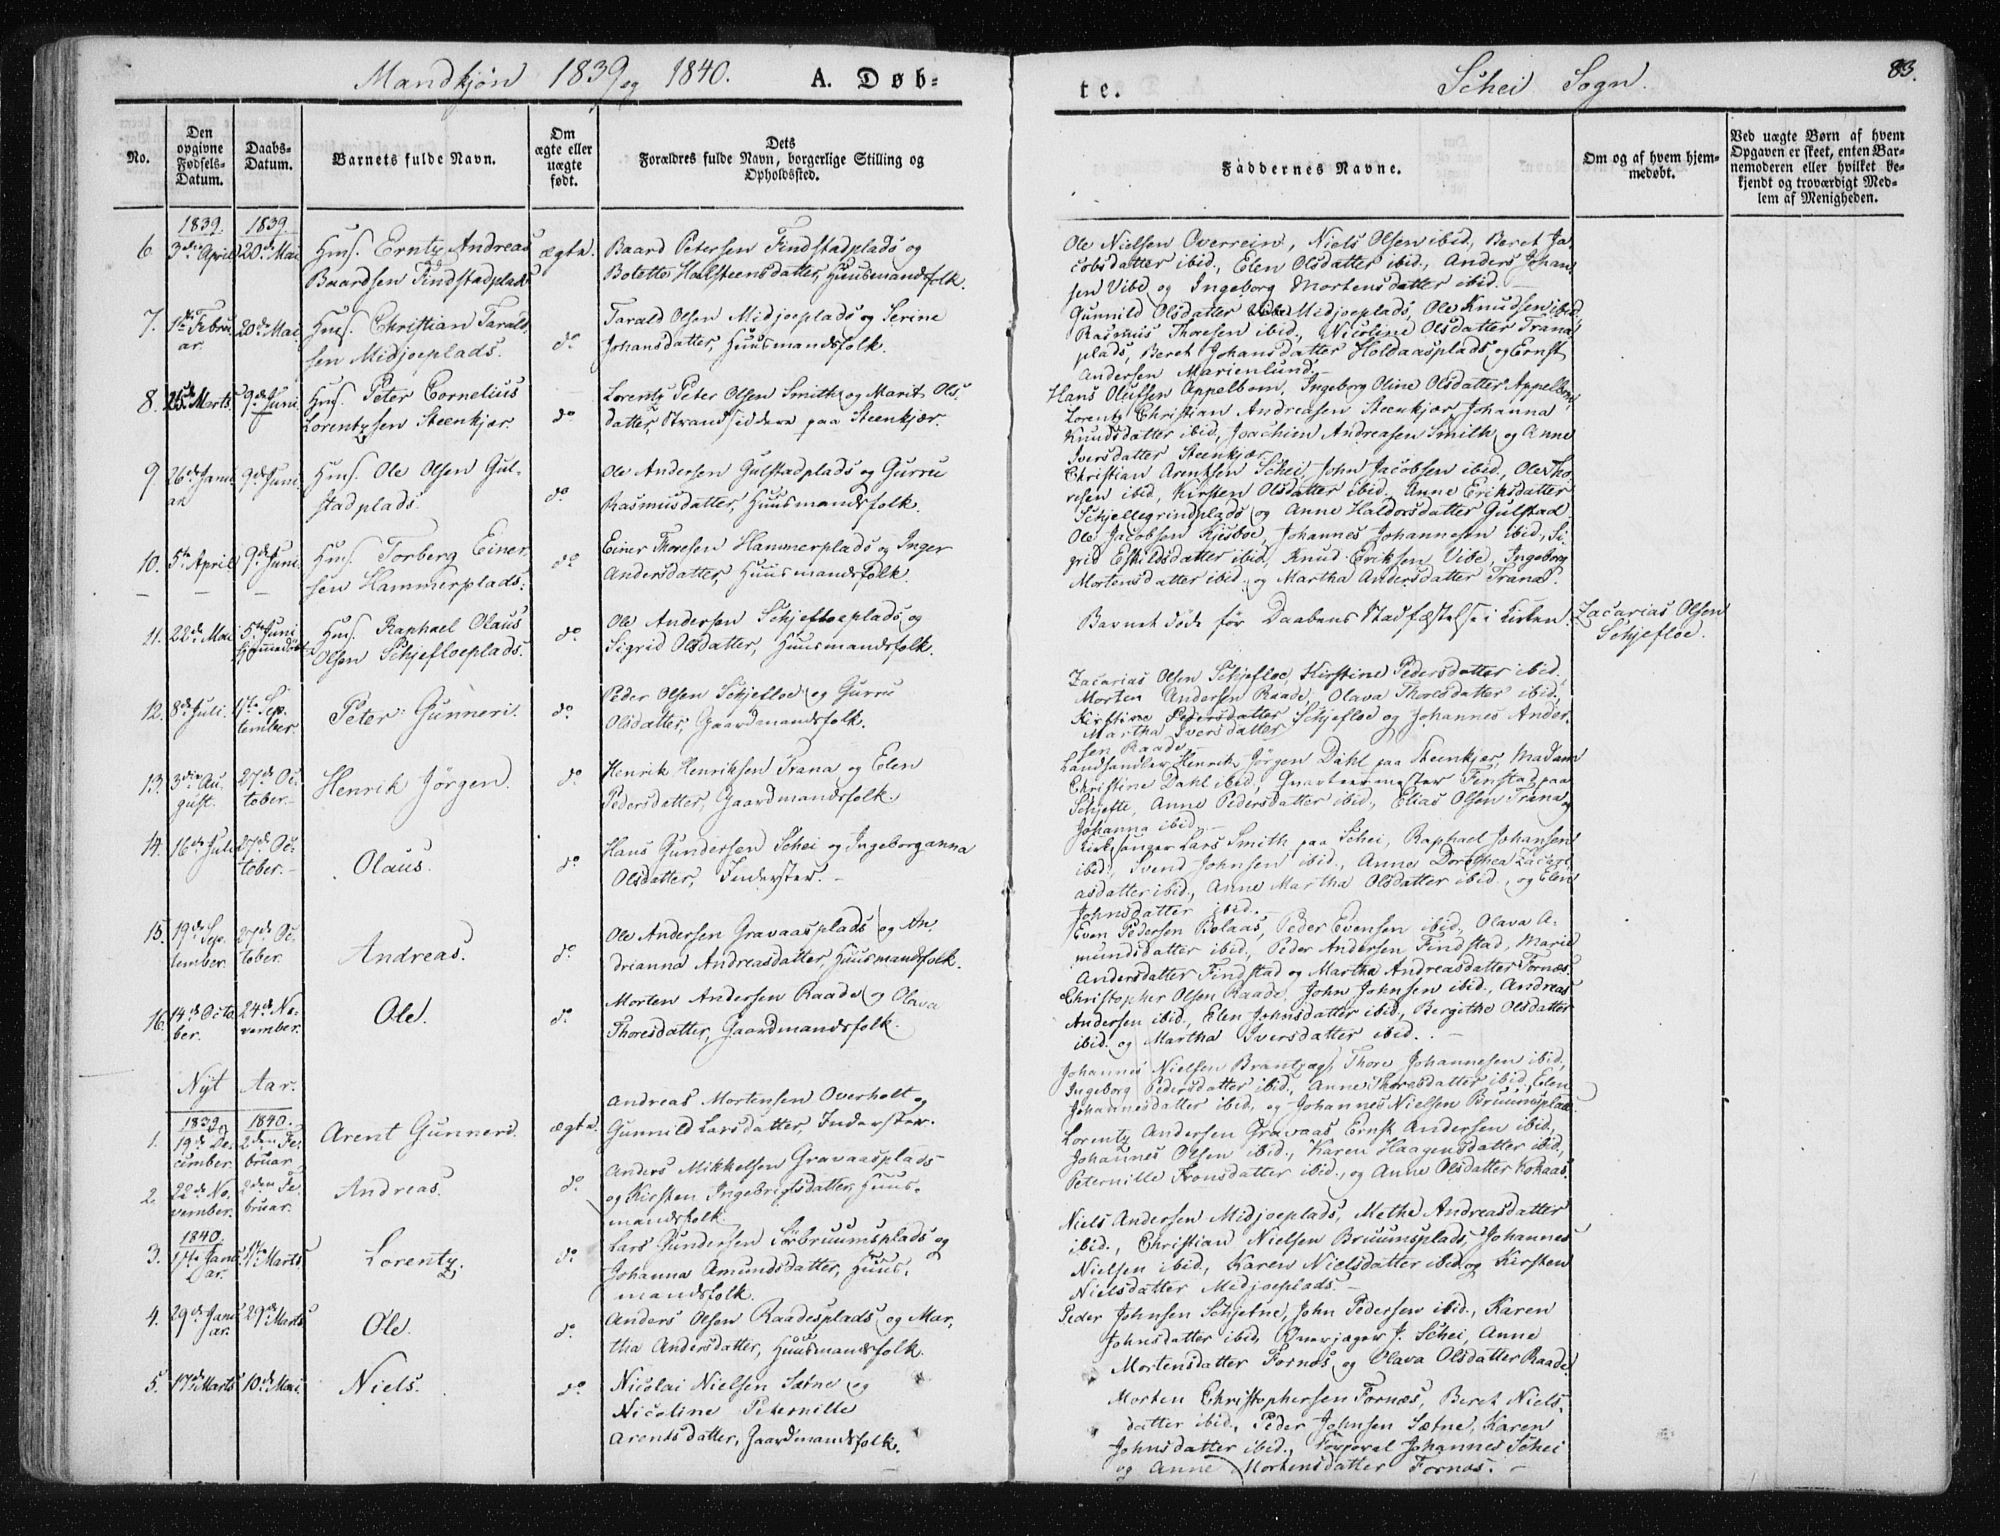 Mandkjøn 1839 og 1840. A. Døb-
te. Schei Sogn. 83.
No.
Den opgivne Fødsels-Datum.
Daabs-Datum.
Barnets fulde Navn.
Om ægte eller uægte født.
Dets Forældres fulde Navn, borgerlige Stilling og Opholdssted.
Faddernes Navne.
Om og af hvem hjemmedøbt.
Ved uægte Børn af hvem Opgaven er skeet, enten Barnemoderen eller hvilket bekjendt og troværdigt Medlem af Menigheden.
1839. 1839.
6. 3die April 20de Mai Hmf. Erntz Andreas ægte. Baard Petersen Findstadplads og
Baardsen Findstadplads Bolette Halsteensdatter, Huusmandsfolk.
Ole Nielsen Overrein, Niels Olsen ibid., Beret Ja-
cobsdatter ibid., Elen Olsdatter ibid., Anders Johan-
sen Vibe og Ingeborg Mortensdatter ibid. —
7. 1ste Febru- 20de Mai Hmf. Christian Tarald- do Tarald Olsen Midjoeplads og Serine
ar. sen Midjoeplads. Johansdatter, Huusmandsfolk.
Gunnild Olsdatter Midjoeplads, Ole Knudsen ibid,
Rasmus Thoresen ibid., Nicoline Olsdatter Trana-
plads, Beret Johansdatter Holdaasplads og Ernst
Andersen Marienlund. —
8. 25de Marts. 9de Juni Hmf. Peter Cornelius do Lorentz Peter Olsen Smith og Marit Ols-
Lorentzsen Steenkjær. datter, Strandsiddere paa Steenkjær.
Hans Olufsen Appelbom, Ingeborg Oline Olsdatter Appelbom,
Lorentz Christian Andreasen Steenkjær, Johanna
Knudsdatter ibid, Joachim Andreasen Smith og Anne
Iversdatter Steenkjær
9. 26de Janu- 9de Juni Hmf. Ole Olsen Gul- do Ole Andersen Gulstadplads og Gurru
ar stadplads. Rasmusdatter, Huusmandsfolk.
Christian Arentsen Schei, John Jacobsen ibid, Ole Tho-
resen ibid, Kirsten Olsdatter ibid. Anne Eriksdatter
Schjellegrindplads og Anne Haldorsdatter Gulstad
10. 5te April 9de Juni. Hmf. Torberg Einer- do Einer Thoresen Hammerplads og Inger
sen Hammerplads. Andersdatter, Huusmandsfolk.
Ole Jacobsen Kjesboe, Johannes Johannesen ibid., Si-
grid Eskildsdatter ibid, Knud Eriksen Vibe, Ingeborg
Mortensdatter ibid. og Martha Andersdatter Trana.
11. 22de Mai 5te Juni Hmf. Raphael Olaus do Ole Andersen Schjefloeplads og
hjemmedøbt Olsen Schjefloeplads. Sigrid Olsdatter, Huusmandsfolk.
Barnet døde før Daabens Stadfæstelse i Kirken. Zacarias Olsen
Schjefloe.
12. 8de Juli. 1ste Sep- Peter Gunneri. do Peder Olsen Schjefloe og Gurru
tember. Olsdatter, Gaardmandsfolk.
Zacarias Olsen Schjefloe, Kirstine Pedersdatter ibid.,
Morten Andersen Raade, Olava Thoresdatter ibid.
Kirstine Pedersdatter Schjefloe og Johannes Ander-
Martha Iversdatter
sen Raade —
13. 3die Au- 27de Oc- Henrik Jörgen. do Henrik Henriksen Trana og Elen
gust. tober. — Pedersdatter, Gaardmandsfolk.
Landhandler Henrik Jörgen Dahl paa Steenkjer, Madam
Christine Dahl ibid, Quarteermester Finstad paa
Schjefte, Anne Pedersdatter ibid., Elias Olsen Trana og
Johanna ibid. —
14. 16de Juli 27de Oc- Olaus. do Hans Gundersen Schei og Ingeborganna
tober. — Olsdatter, Inderster. —
Kirkesanger Lars Smith paa Schei, Raphael Johansen
ibid., Svend Johnsen ibid., Anne Dorothea Zacari-
asdatter ibid., Anne Martha Olsdatter ibid., og Elen
Johnsdatter ibid. —
15. 19de Sep- 27de Oc- Andreas. do Ole Andersen Gravaasplads og An-
tember. tober. drianna Andreasdatter, Huusmandsfolk.
Even Pedersen Bolaas, Peder Evensen ibid, Olava A-
mundsdatter ibid, Peder Andersen Findstad, Marie
Andersdatter Findstad og Martha Andreasdatter Fornæs.
16. 14de Octo- 24de No- Ole. do Morten Andersen Raade og Olava
ber. vember. Thoresdatter, Gaardmandsfolk.
Christopher Olsen Raade, John Johnsen ibid, Andreas
Andersen ibid., Elen Johnsdatter ibid., Bergithe Olsdatter
ibid. og Martha Iversdatter ibid. —
Nyt Aar.
1839. 1840.
1. 19de De- 2den Fe- Arent Gunneri. ægte. Andreas Mortensen Overholt og
cember. bruar Gunnild Larsdatter, Inderster.
Johannes Nielsen Brantzæg, Thore Johannesen ibid,
Ingeborg Pedersdatter ibid, Anne Thoresdatter ibid, Elen
Johannesdatter ibid, og Johannes Nielsen Bruumsplads.
2. 22de No- 2den Fe- Andreas. do Anders Mikkelsen Gravaasplads
vember. bruar. og Kirsten Ingebrigtsdatter, Huus-
mandsfolk.
Lorentz Andersen Gravaas Ernst Andersen ibid,
Johannes Olsen ibid., Karen Haagensdatter ibid,
Peternille Tronsdatter ibid., og Anne Olsdatter Kohaas.
1840.
3. 17de Janu- 1ste Marts Lorentz. do Lars Gundersen Sörbruumsplads og
ar. Johanna Amundsdatter, Huus-
mandsfolk.
Niels Andersen Midjoeplads, Methe Andreasdatter
ibid., Christian Nielsen Bruumsplads, Johannes
Nielsen ibid, Karen Nielsdatter ibid. og Kirsten
Nielsdatter Midjoeplads. —
4. 29de Janu- 29de Marts Ole. do Anders Olsen Raadesplads og Mar-
ar. tha Andersdatter, Huusmandsfolk.
Peder Johnsen Schjetne, John Pedersen ibid., Karen
Johnsdatter ibid, J. Schei, Anne
Mortensdatter Fornæs og Olava Olsdatter Raade.
5. 17de Marts 10de Mai. Niels. do Nicolai Nielsen Sætne og
Nicoline Peternille
Arentsdatter, Gaardmandsfolk.
Morten Christophersen Fornæs, Beret Niels-
datter ibid., Peder Johnsen Sætne, Karen
Johnsdatter ibid., Johannes Schei
og Anne Mortensdatter Fornæs. —